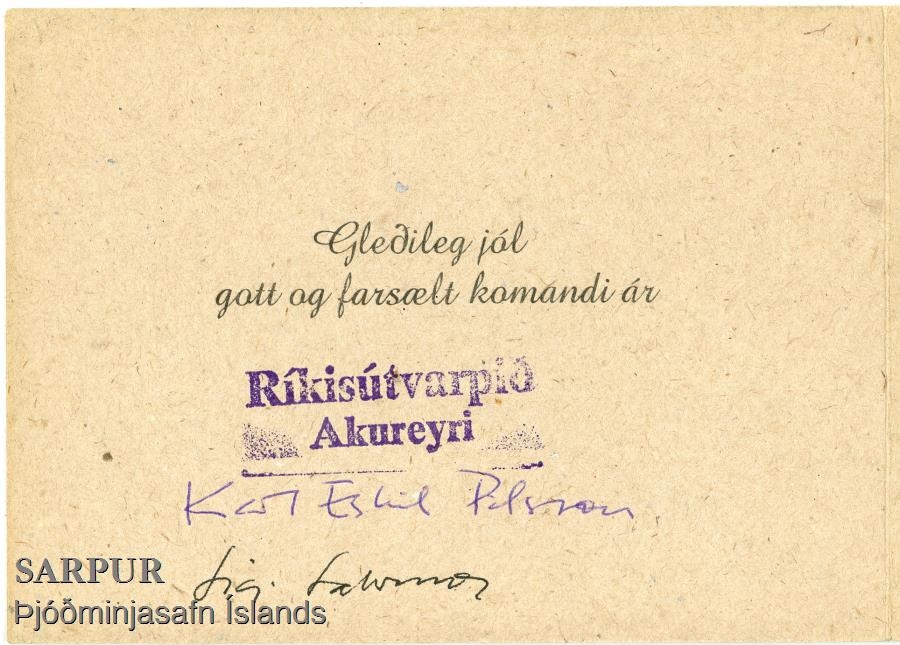 Gleðileg jól
gott og farsælt komandi ár
Ríkisútvarpið
Akureyri
Karl Eskil Pálsson
SARPUR
Þjóðminjasafn Íslands